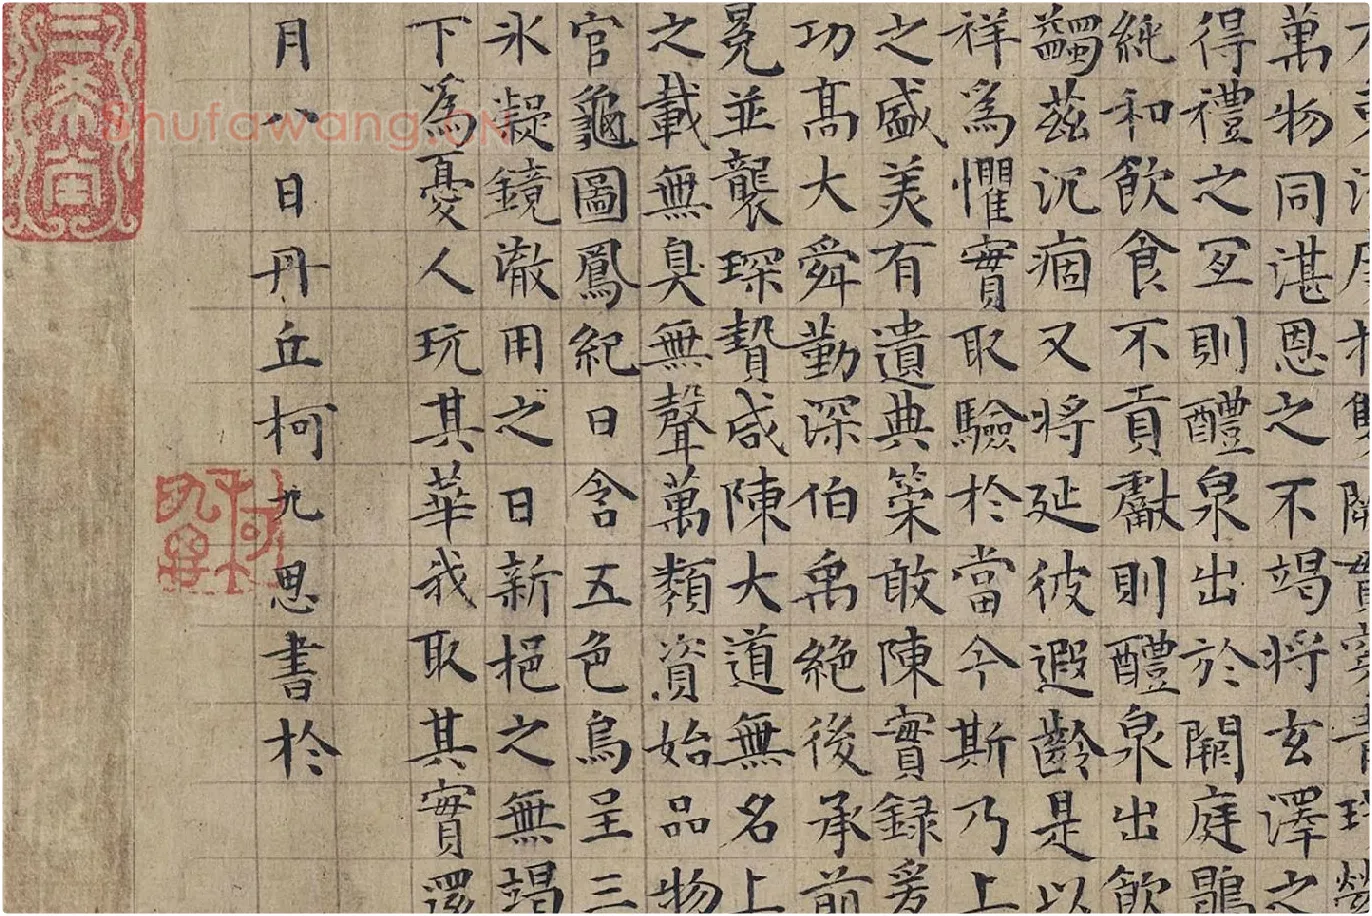 萬物同湛恩之不竭將玄澤之
得禮之冝則醴泉出於闕庭鶡
純和飲食不貢獻則醴泉出飲
蠲茲沉痼又將延彼遐齡是以
祥為懼實取驗於當今斯乃上
之盛美有遺典策敢陳實録爰
功髙大舜勤深伯禹絕後承前
冕並襲琛贄咸陳大道無名上
之載無臭無聲萬類資始品物
官龜圖鳳紀日含五色烏呈三
氷凝鏡澈用之日新挹之無竭
下為憂人玩其華我取其實還
月八日丹丘柯九思書於
三希堂
Shufawang.CN